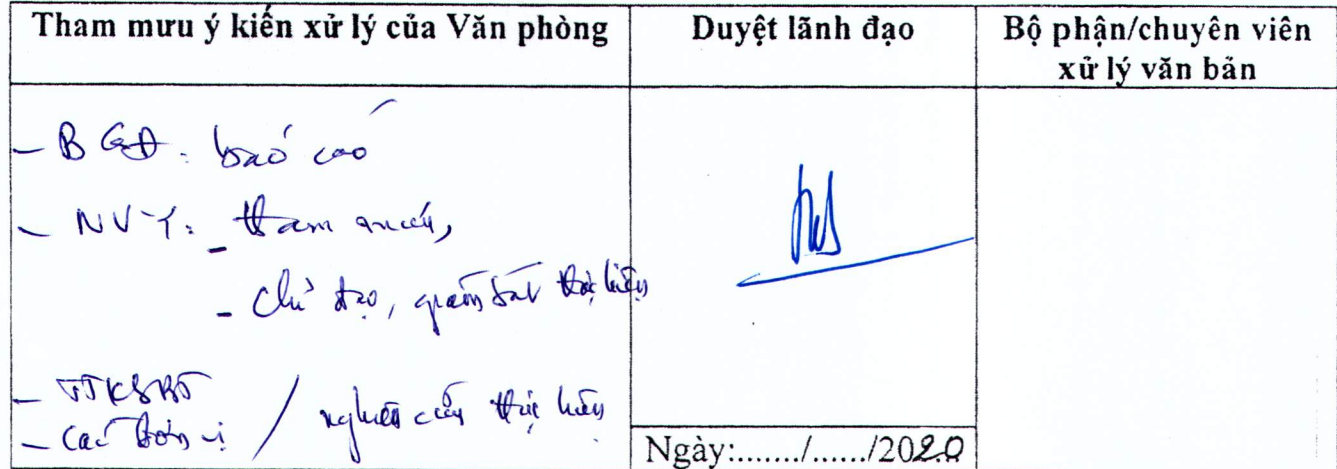 Tham mưu ý kiến xử lý của Văn phòng
Duyệt lãnh đạo
Bộ phận/chuyên viên
xử lý văn bản
- BGĐ: báo cáo
- NVY: - tham mưu,
- chỉ đạo, giám sát thực hiện
- TTKSBT
- Các đơn vị / nghiên cứu thực hiện
Ngày:......./....../2020